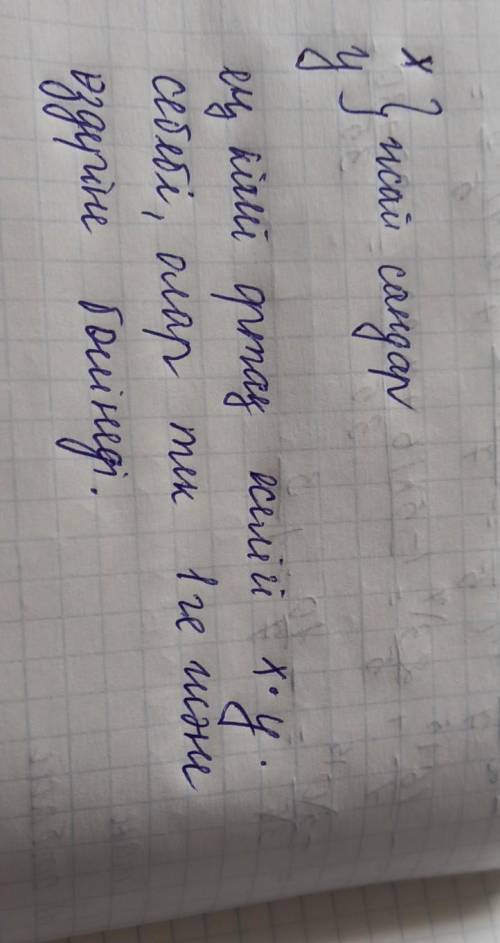 х } жай сандар
у
ең кіші ортақ еселігі х·у.
себебі, олар тек 1ге және
өздеріне бөлінеді.